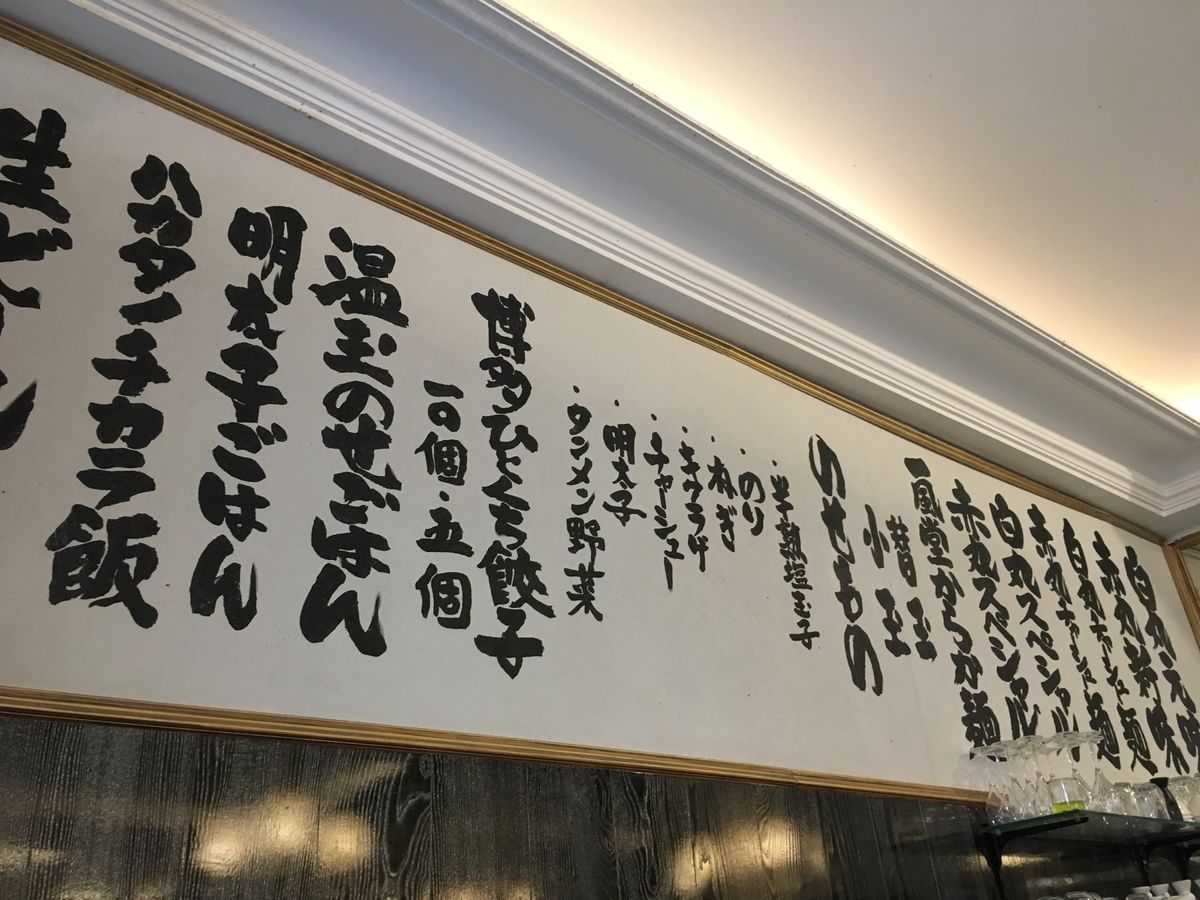 白丸元味
赤丸新味
白丸チャーシュー麺
赤丸チャーシュー麺
白丸スペシャル
赤丸スペシャル
一風堂からか麺
替玉
小玉
のせもの
・半熟塩玉子
・のり
・ねぎ
・キクラゲ
・チャーシュー
・明太子
・タンメン野菜
博多ひとくち餃子
一〇個・五個
温玉のせごはん
明太子ごはん
ハカタノチカラ飯
生ビール